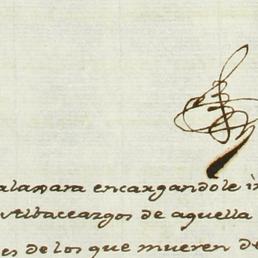 encargandole
Albaceazgos de aquella
es de los que mueren de